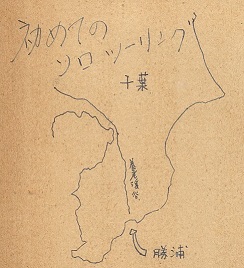 初めての
ソロツーリング
千葉
養老渓谷
勝浦